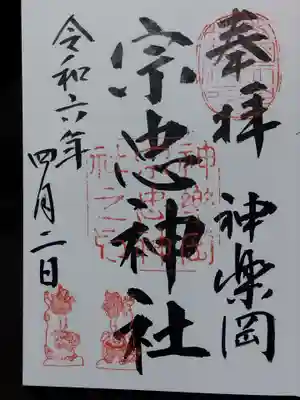 奉拝
神楽岡
宗忠神社
令和六年
四月二日